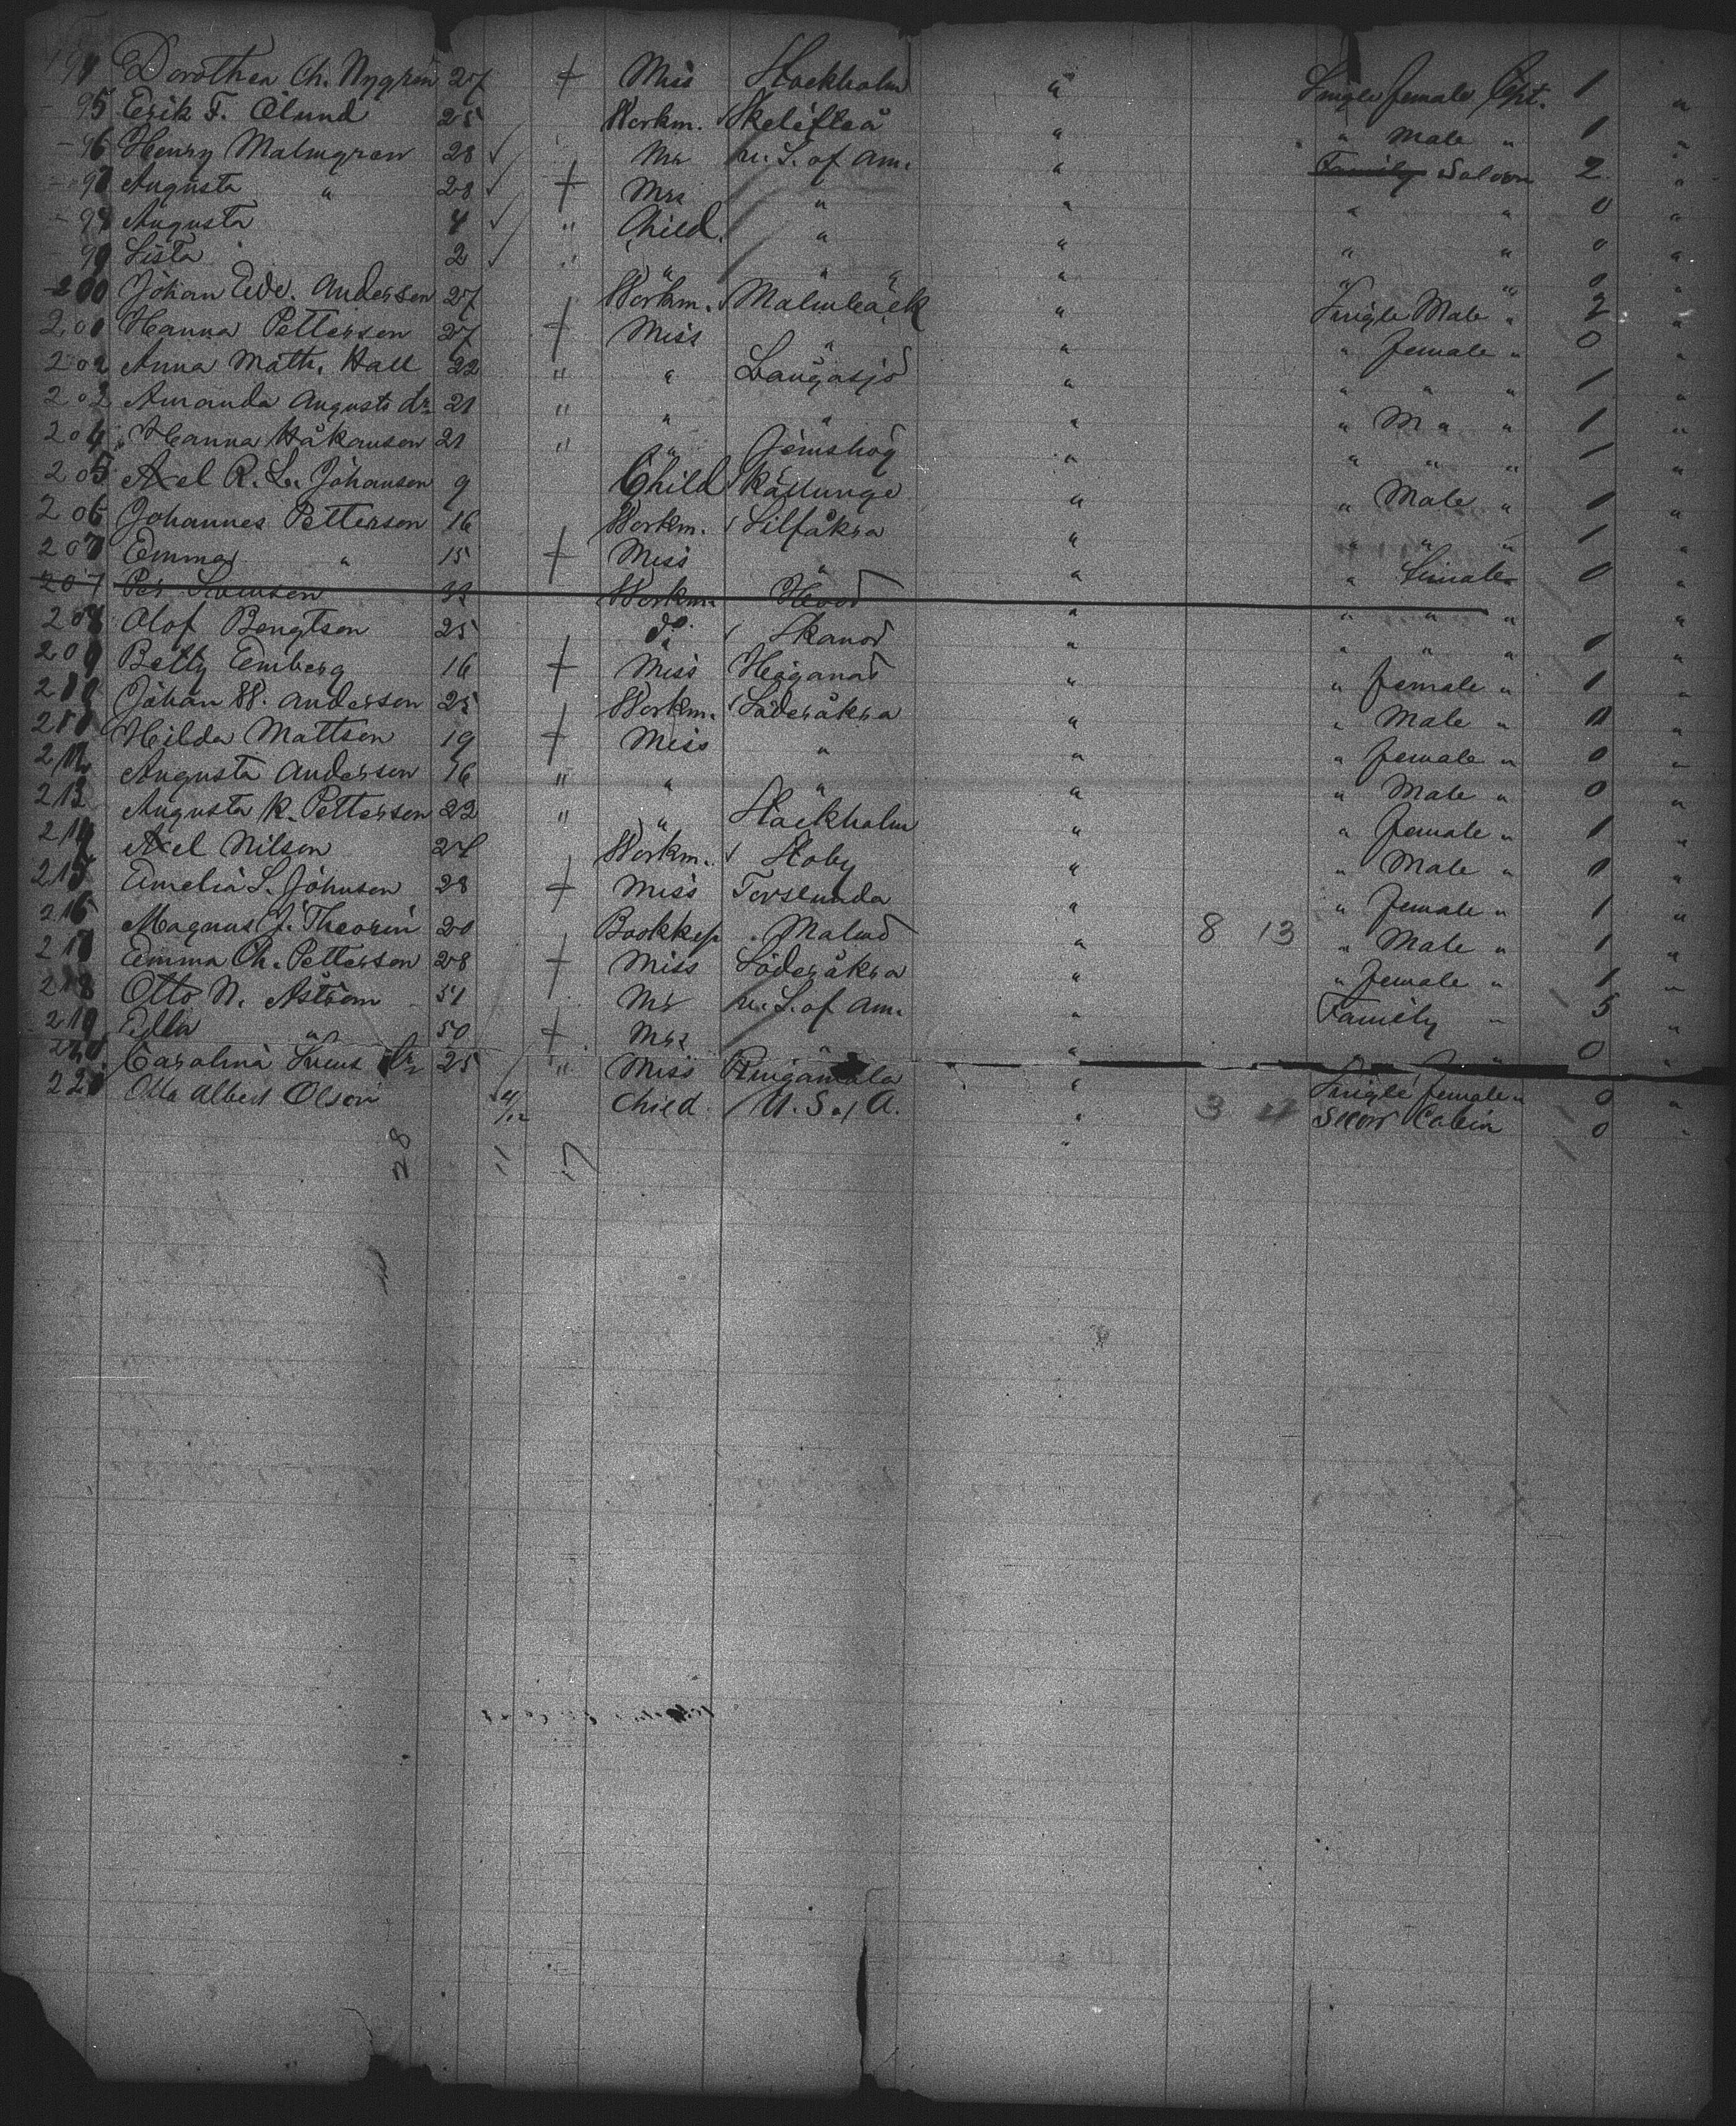 194 Dorothea Ch. Nygren 27 + Miss Stockholm " Single female Cpt. 1 "
- 95 Erik F. Ölund 25 Workm. Skelifteå " " Male " 1 "
- 96 Henry Malmgren 28 ✓ Mr u. S. of am. " Family Saloon 2 "
- 97 Augusta " 28 ✓ + Mrs " " " " 0 "
- 98 Augusta 4 ✓ " Child " " " " 0 "
99 Sista 2 ✓ " " " " " " 0 "
200 Johan Edv. Anderson 27 Workm. Malmbäck " Single Male " 2 "
201 Hanna Petterson 27 + Miss " " " female " 0 "
202 Anna Math. Hall 22 " " Långasjö " " " " 1 "
203 Amanda Augusts dr 21 " " " " " " 1 "
204 Hanna Håkanson 21 " " Jemshög " " " " 1 "
205 Axel R. L. Johanson 9 Child Källunge " " Male " 1 "
206 Johannes Petterson 16 Workm. ✓ Silfåkra " " " " 1 "
207 Emma " 15 + Miss " " " female 0 "
207 Per 32 Workm. " " " " "
208 Olof Bengtson 25 do ✓ Skanör " " " " 1 "
209 Betty Emberg 16 + Miss Höganäs " " female " 1 "
210 Johan W. Anderson 25 Workm. Söderåkra " " Male " "
211 Hilda Mattson 19 + Miss " " " female " 0 "
212 Augusta Anderson 16 " " " " " Male " 0 "
213 Augusta K. Petterson 22 " " Stockholm " " female " 1 "
214 Axel Nilson Workm. ✓ Stoby " " Male " 1 "
215 Amelia S. Johnson 28 + Miss Torslunda " " female " 1 "
216 Magnus J. Theorin 20 Bookkep Malmö " 8 13 " Male " 1 "
217 Emma Ch. Petterson 28 + Miss Söderåkra " " female " 1 "
218 Otto N. Aström 51 Mr u. S. of am. " Family " 5 "
219 Edla " 50 + Mrs " " " 0 "
220 Carolina dr 25 " Miss Ringamåla " Single female " 0 "
221 Otto Albert Olson 11/12 Child U. S. of A. " 3 Cabin 0 "
28 11 17